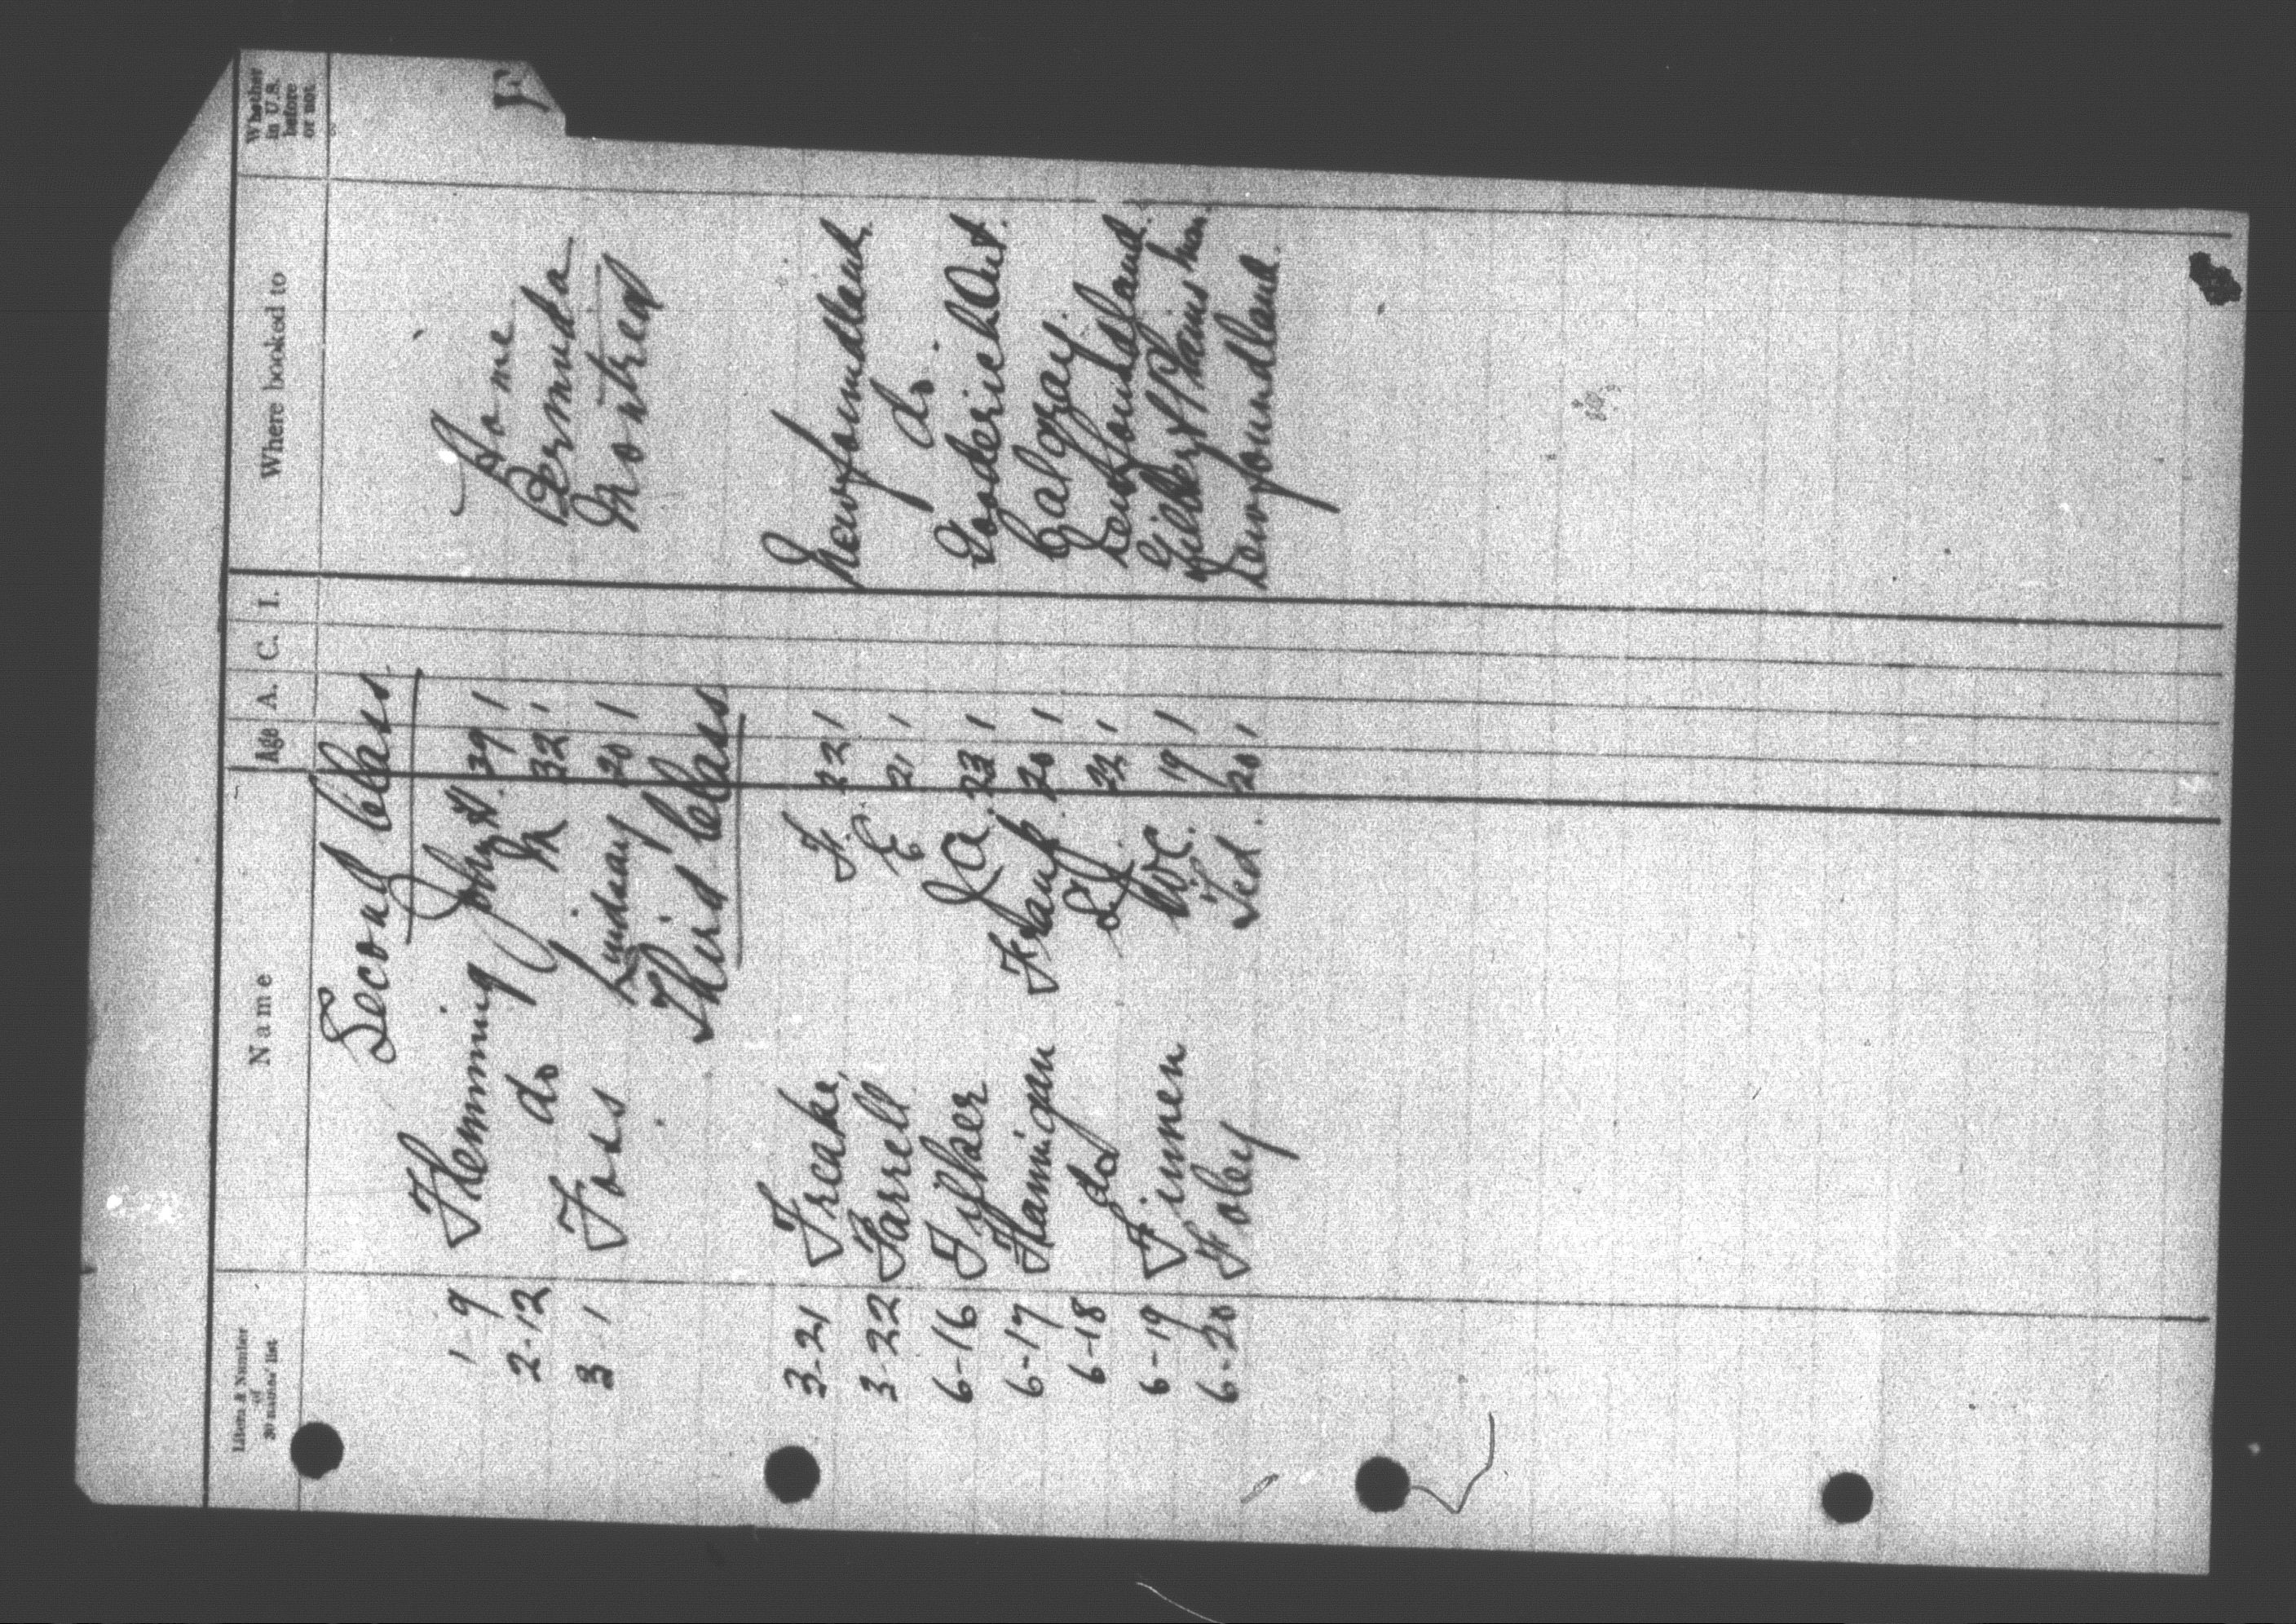 F
Letters & Number of 30 names' list Name Age A. C. I. Where booked to Whether in U.S. before or not
Second Class
1 9 Flemming John H. 39 1 Home
2-12 do M 32 1 Bermuda
3-1 Foss Lindsay 20 1 Montreal
Third Class
3-21 Freake, F. 22 1 Newfoundland
3-22 Farrell E 21 1 do.
6-16 Filker J A. 23 1 Goderich Ont.
6-17 Flannigan Frank 20 1 Calgary.
6-18 do 22 1 Newfoundland.
6-19 Finnen W C. 19 1 Gilbert Plains Man.
6-20 Foley Ted. 20 1 Newfoundland.